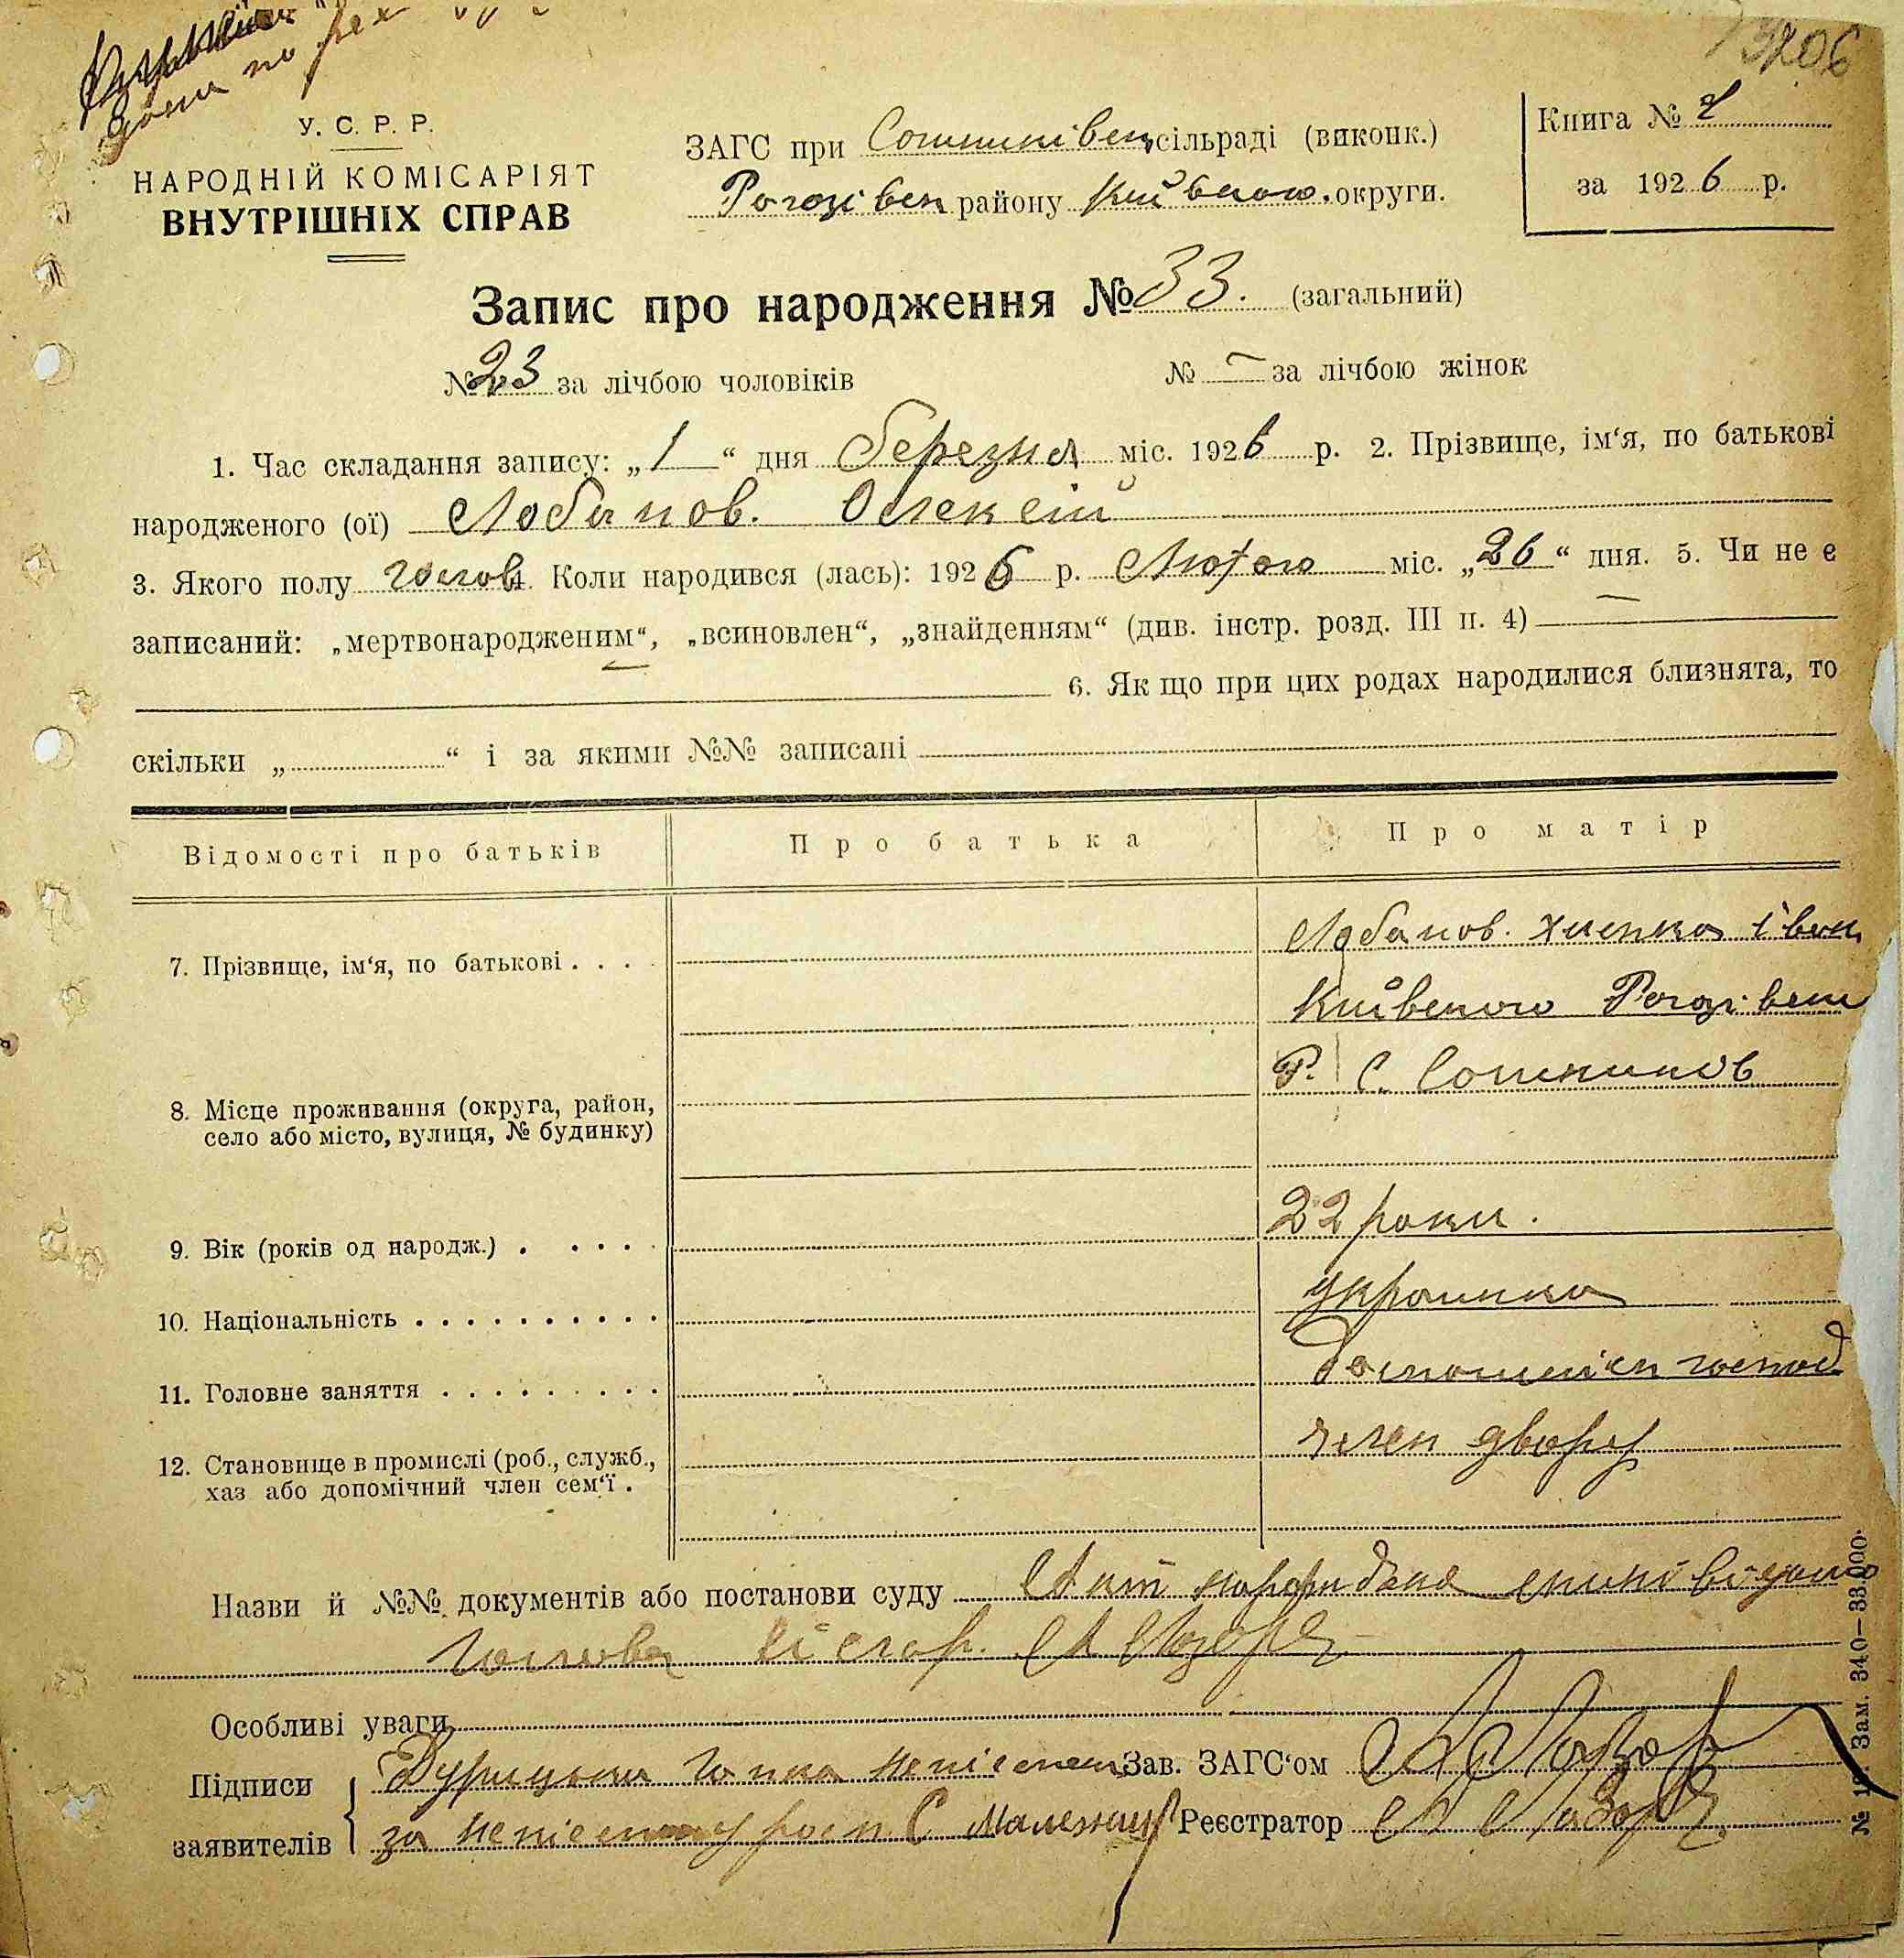 3206
У. С. Р. Р.
НАРОДНІЙ КОМІСАРІЯТ
ВНУТРІШНІХ СПРАВ
ЗАГС при Сошниківськ сільраді (виконк.)
Рогозівськ району Київського округи.
Книга №
за 1926 р.
Запис про народження № 33. (загальний)
№ 23 за лічбою чоловіків № — за лічбою жінок
1. Час складання запису: „1“ дня березня міс. 1926 р. 2. Прізвище, ім‘я, по батькові
народженого (ої) Лобанов. Олексій
3. Якого полу чолов. 4. Коли народився (лась): 1926 р. Лютого міс. „26“ дня. 5. Чи не є
записаний: „мертвонародженим“, „всиновлен“, „знайденням“ (див. інстр. розд. III п. 4) —
6. Як що при цих родах народилися близнята, то
скільки „ “ і за якими №№ записані
Відомості про батьків Про батька Про матір
7. Прізвище, ім‘я, по батькові . . . . Лобанов. Іван
Київського Рогозівськ
Р. С. Сошников
8. Місце проживання (округа, район,
село або місто, вулиця, № будинку)
9. Вік (років од народж.) . . . . . 22 роки.
10. Національність . . . . . . . . . . українка
11. Головне заняття . . . . . . . . . господ
12. Становище в промислі (роб., служб., член двору
хаз або допомічний член сем‘ї .
Назви й №№ документів або постанови суду
Особливі уваги
Підписи неписьмен Зав. ЗАГС‘ом
заявителів за неписьменну росп. С Реєстратор
Зам. 340—33.000.